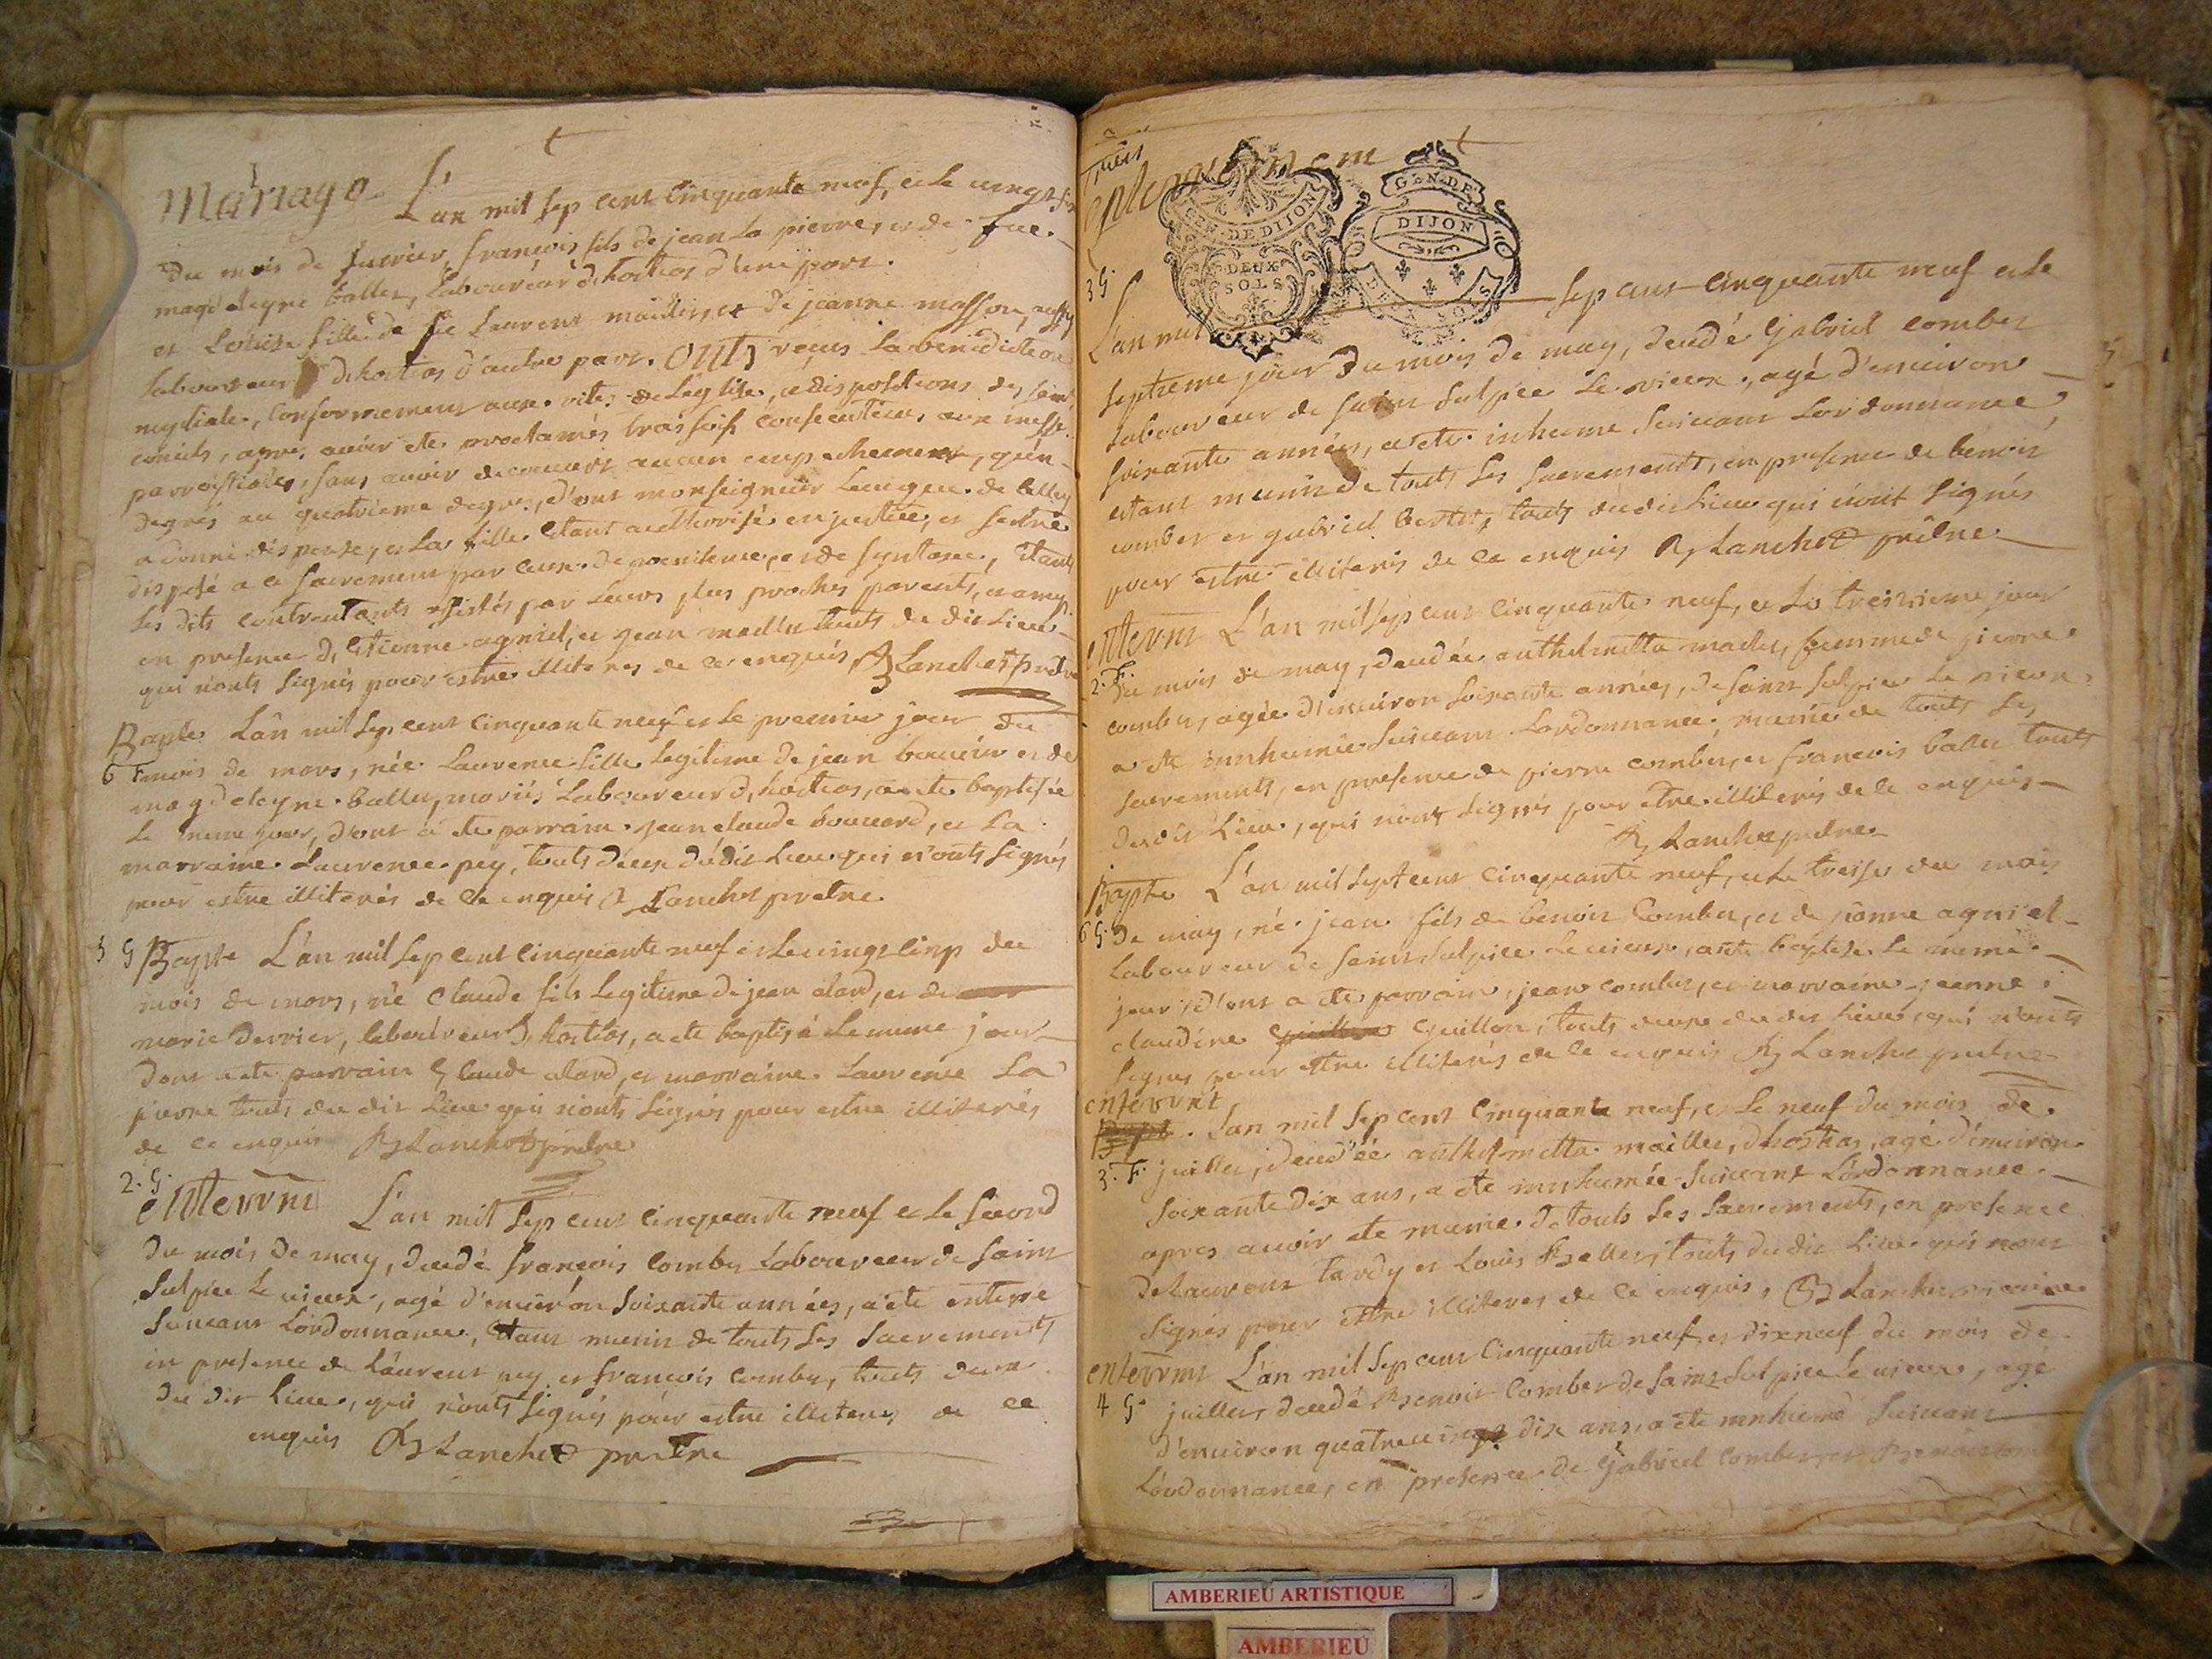 Mariage L'an mil sep cent cinquante neuf, et le vingt six
du mois de feuvrier, francois fils de jean la pierre, et de fue
magdelegne ballet, laboureur d'hostias d'une part.
et Louise fille de fu Laurent mailler, et de jeanne masson, aussy
laboureur d'hostias d'autre part. Onts reçus la benediction
nuptiale, conformement aux rites de l'eglise, et dispositions des saints
concils, apres avoir ete proclamés trois fois consecutives aux messes
parroissiales, sans avoir decouvert aucun empechement, qu'en
degrés au quatrieme degre, d'ont monseigneur l'eveque de belley
a donné dispense, et la fille etant authorisée en justice, et s'estre
disposé a ce sacrement par ceux de penitence, et de syntaxe, etants
les dits contractants assistés par leurs plus proches parents, et amys
en presence d'etienne agniel, et jean mailler touts du dit lieu
qui n'onts signés pour estre illiteres de ce enquis Lanchet pretre
Bapte L'an mil sep cent cinquante neuf et le premier jour du
6 F mois de mars, née Laurence fille legitime de jean bouvier et de
magdelegne ballet, mariés laboureur d'hostias, a ete baptisée
le meme jour, d'ont a ete parrain jean claude bouvard, et la
marraine Laurence pey, touts deux du dit lieu qui n'onts signés
pour estre illiterés de ce enquis Lanchet pretre
5 G Bapte L'an mil sep cent cinquante neuf et le vingt cinq du
mois de mars, né Claude fils legitime de jean alard, et de
marie Derrier, laboureur d'hostias, a ete baptisé le meme jour
dont a ete parrain Claude alard, et marraine Laurence La
pierre touts du dit lieu qui n'onts signés pour estre illiterés
de ce enquis Lanchet pretre
2. G.
enterrmt L'an mil sep cent cinquante neuf et le second
du mois de may, decedé francois Combet Laboureur de saint
Sulpice le vieux, agé d'environ soixante années, a ete enterré
suivant L'ordonnance, etant munis de touts ses sacrements
en presence de Laurent pey et francois combet, touts deux
du dit lieu, qui n'onts signés pour estre illiteres de ce
enquis Lanchet pretre
GEN. DE DIJON
DEUX
SOLS
GEN. DE
DIJON
DEUX SOLS
3 G.
L'an mil sep cent cinquante neuf et le
septieme jour du mois de may, decedé Gabriel combet
laboureur de saint Sulpice le vieux, agé d'environ
soixante années, a ete inhumé suivant L'ordonnance,
etant munis de touts ses sacrements, en presence de benoit
combet et gabriel, touts du dit lieu qui n'ont signés
pour estre illiterés de ce enquis Lanchet pretre
enterrmt L'an mil sep cent cinquante neuf, et le treizieme jour
2. F. du mois de may, decedée anthelmette mailler, femme de pierre
combet, agée d'environ soixante années, de saint Sulpice le vieux
a ete innhumée suivant L'ordonnance, munie de touts ses
sacrements, en presence de pierre combet, et francois ballet touts
du dit lieu, qui n'ont signés pour etre illiterés de ce enquis
Lanchet pretre
Bapte L'an mil sept cent cinquante neuf, et le treize du mois
6 G. de may, né jean fils de benoit Combet, et de jeanne agniel
laboureur de saint Sulpice le vieux, a ete baptizé le meme
jour, d'ont a ete parrain, jean combet, et marraine jeanne
claudine Guillon, touts deux du dit lieu, qui n'onts
signes pour etre illiterés de ce enquis Lanchet pretre
enterrmt
L'an mil sep cent cinquante neuf, et le neuf du mois de
3. F. juillet, decedée anthelmette mailler, d'hostias, agé d'environ
soixante dix ans, a ete innhumée suivant L'ordonnance
apres avoir ete munie de touts ses sacrements, en presence
de Laurent tardy et Louis Ballet, touts du dit lieu qui n'ont
signés pour etre illiteres de ce enquis, Lanchet
enterrmt L'an mil sep cent cinquante neuf, et dixneuf du mois de
4 G. juillet, decedé Benoit Combet de saint Sulpice le vieux, agé
d'environ quatre vingt dix ans, a ete innhumé suivant
L'ordonnance, en presence de Gabriel combet, et Benoit
AMBERIEU ARTISTIQUE
AMBERIEU